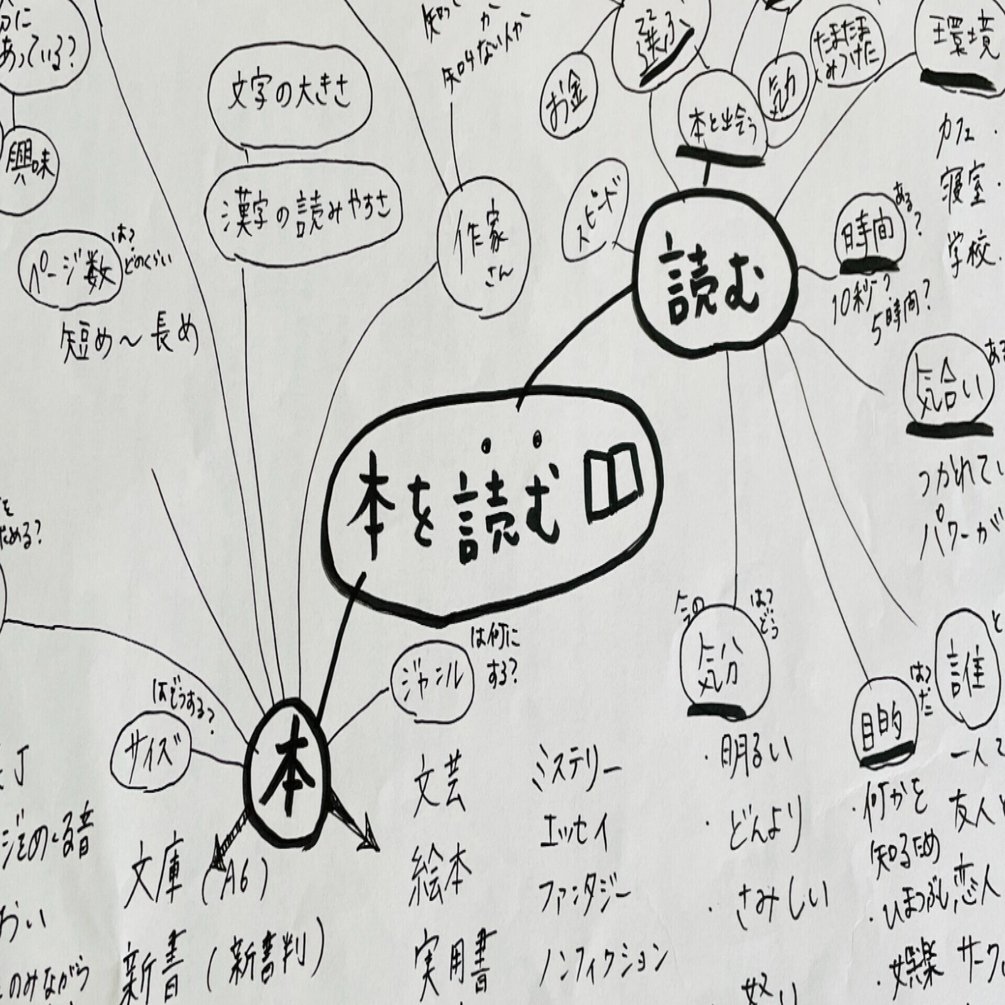 あっている?
興味
文字の大きさ
漢字の読みやすさ
ページ数
は?
どのくらい
短め〜長め
知らない人か
作家
さん
お金
選ぶ
本と出会う
気力
たまたま
みつけた
環境
カフェ
寝室
学校
スピード
読む
時間
ある?
10秒〜
5時間?
気合い
つかれてい
パワーが
本を読む
本
サイズ
はどうする?
文庫(A6)
新書(新書判)
ジャンル
は何に
する?
文芸
絵本
実用書
ミステリー
エッセイ
ファンタジー
ノンフィクション
今の
気分
はどう?
・明るい
・どんより
・さみしい
怒り
目的
・何かを
知るため
・ひまつぶし
・娯楽
誰
と
一人で
友人と
恋人
サーク
ジをめくる音
のみながら